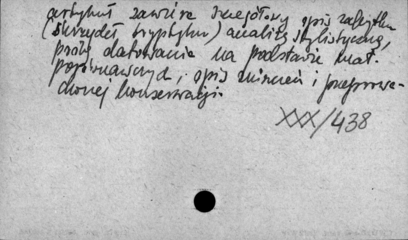 artykuł zawiera szczegółowy opis zabytku
(skrzydeł tryptyku) analizę stylistyczną,
próbę datowania na podstawie mat.
porównawczych, opis zniszczeń i przeprowa-
dzonej konserwacji.
XXX/438